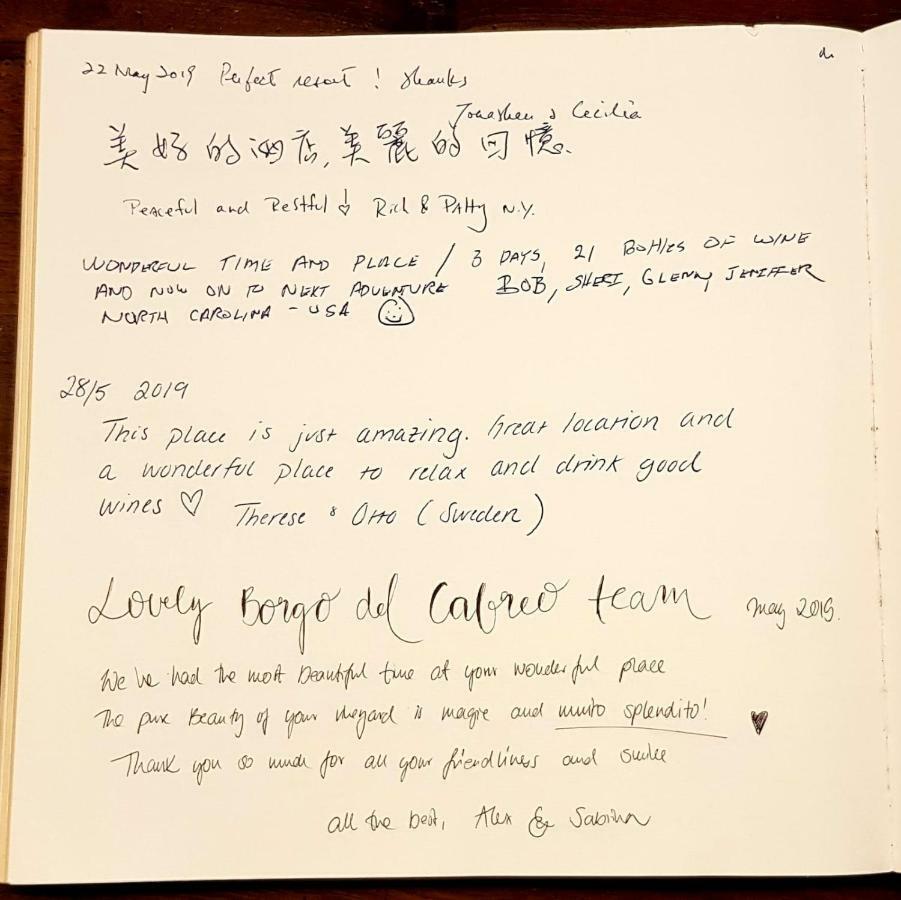 22 May 2019 Perfect resort ! thanks
Jonathan & Cecilia
美好的酒店,美麗的回憶.
Peaceful and Restful Rich & Patty N.Y.
WONDERFUL TIME AND PLACE / 3 DAYS, 21 BOttles OF WINE
AND NOW ON TO NEXT ADVENTURE BOB, SHERI, GLENN, JENIFFER
NORTH CAROLINA - USA
28/5 2019
This place is just amazing. Great location and
a wonderful place to relax and drink good
wines ♡ Therese & Otto (Sweden)
Lovely Borgo del Cabreo team may 2019.
We've had the most beautiful time at your wonderful place
The pure Beauty of your vineyard is magic and muito splendito! ♥
Thank you so much for all your friendliness and smile
all the best, Alex & Sabina